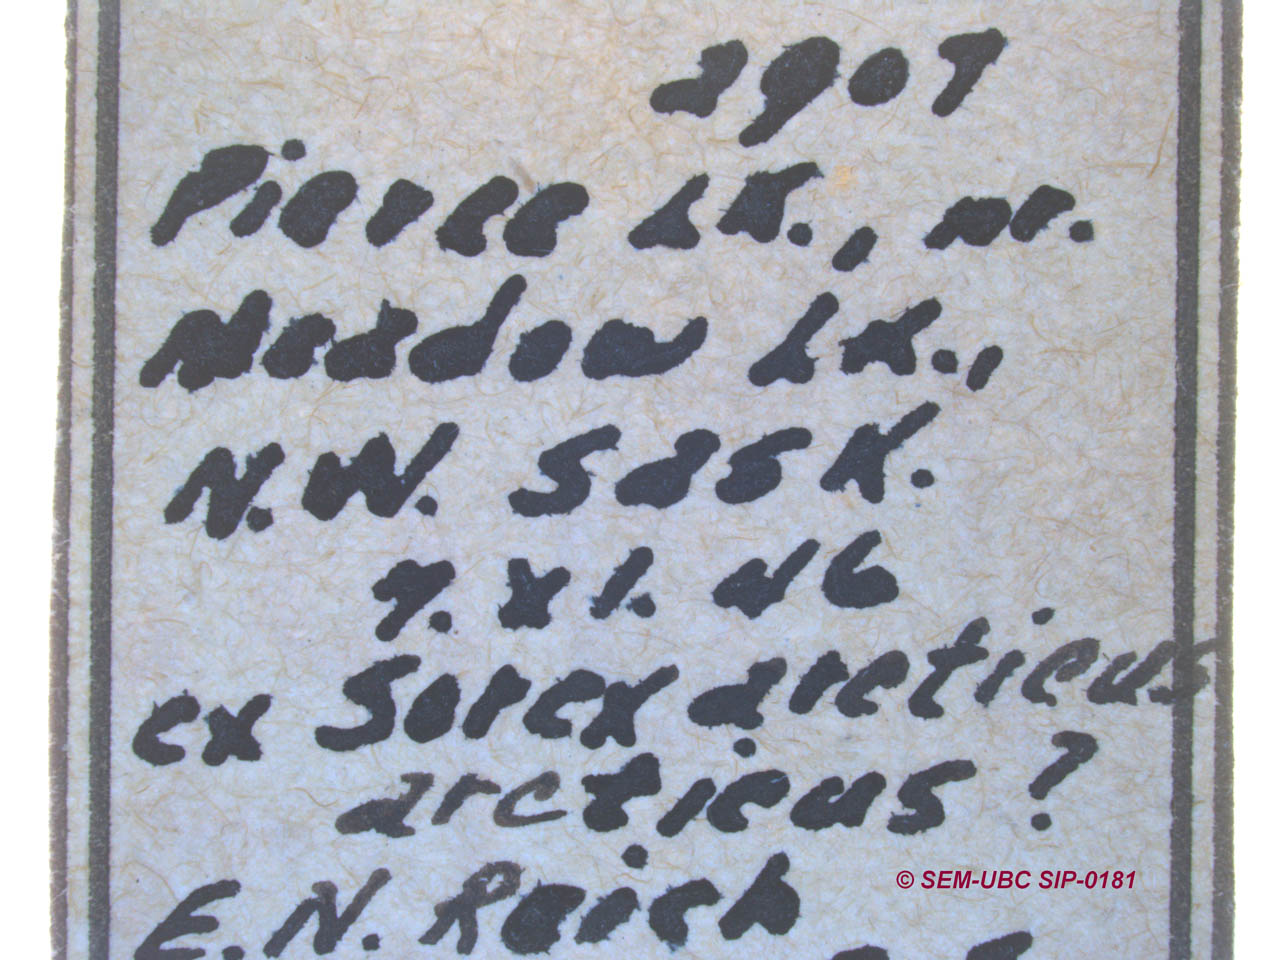 2907
Pierce Lk., nr.
Meadow Lk.,
N.W. Sask.
7. XI. 46
ex Sorex arcticus
arcticus?
E.N. Reich
© SEM-UBC SIP-0181